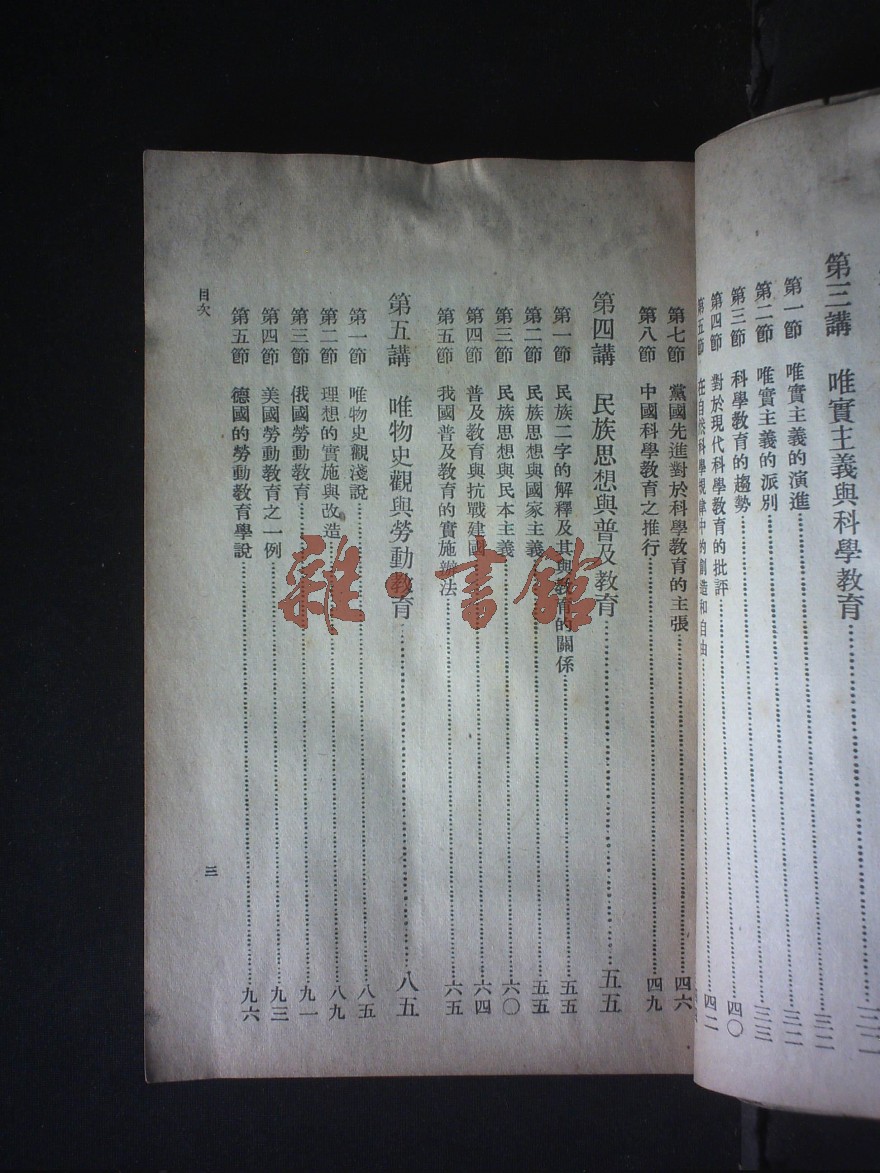 第三講　唯實主義與科學教育
第一節　唯實主義的演進……三二
第二節　唯實主義的派別……三三
第三節　科學教育的趨勢……四〇
第四節　對於現代科學教育的批評……四二
第五節　在自然科學規律中的創造和自由
第七節　黨國先進對於科學教育的主張……四六
第八節　中國科學教育之推行……四九
第四講　民族思想與普及教育……五五
第一節　民族二字的解釋及其與教育的關係……五五
第二節　民族思想與國家主義……五五
第三節　民族思想與民本主義……六〇
第四節　普及教育與抗戰建國……六四
第五節　我國普及教育的實施辦法……六五
第五講　唯物史觀與勞動教育……八五
第一節　唯物史觀淺說……八五
第二節　理想的實施與改造……八九
第三節　俄國勞動教育……九一
第四節　美國勞動教育之一例……九三
第五節　德國的勞動教育學說……九六
目次
三
雜·書館